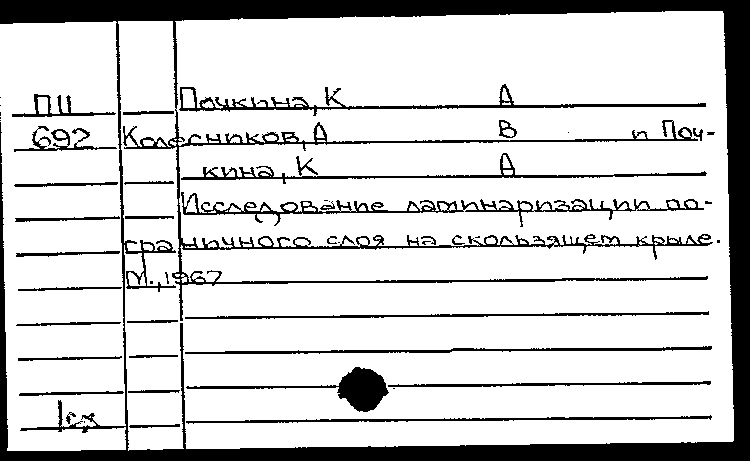 П11 Почкина, К А
692 Колесников, А В и Поч-
кина, К А
Исследование ламинаризации по-
граничного слоя на скользящем крыле.
М., 1967